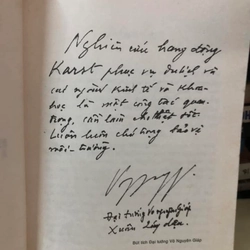 Nghiên cứu hang động
Karst phục vụ du lịch và
con người kinh tế và khoa
học là một công tác quan
trọng, cần làm thật tốt.
Luôn luôn chú trọng bảo vệ
môi trường.
Đại tướng Võ Nguyên Giáp
Xuân
Bút tích Đại tướng Võ Nguyên Giáp